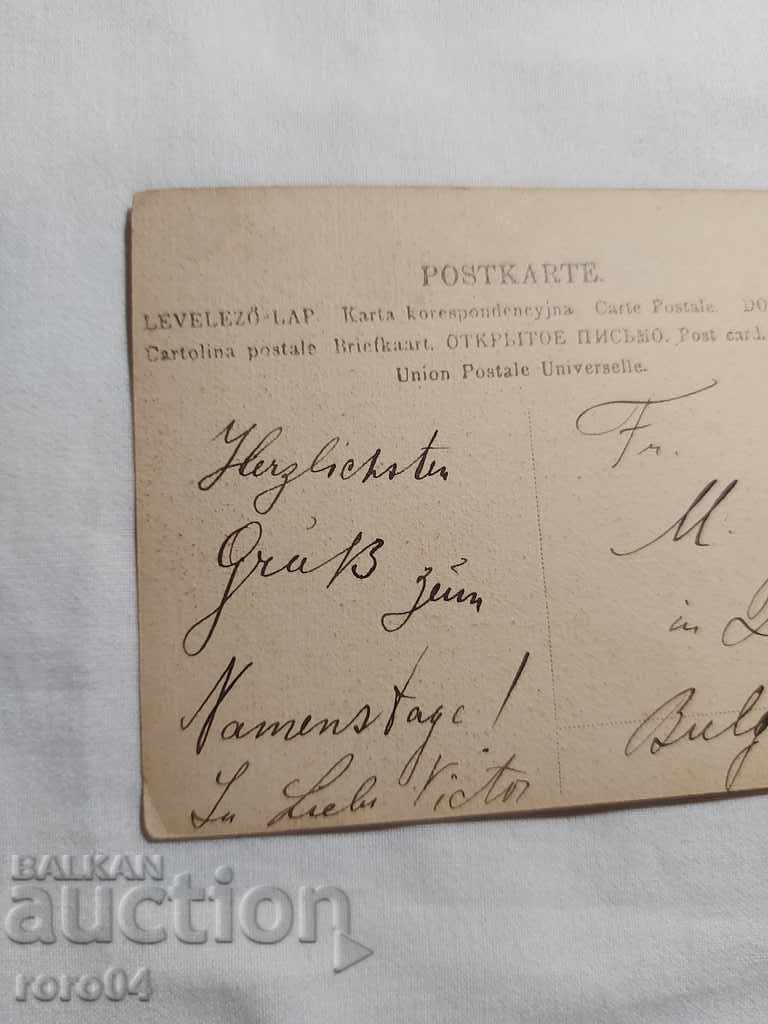 POSTKARTE.
LEVELEZŐ-LAP. Karta korespondencyjna Carte Postale. DO
Cartolina postale Briefkaart. ОТКРЫТОЕ ПИСЬМО. Post card.
Union Postale Universelle.
Herzlichsten
Gruß zum
Namenstage!
In Liebe Victor
Fr.
M.
in
Bulg
BALKAN
auction
roro04